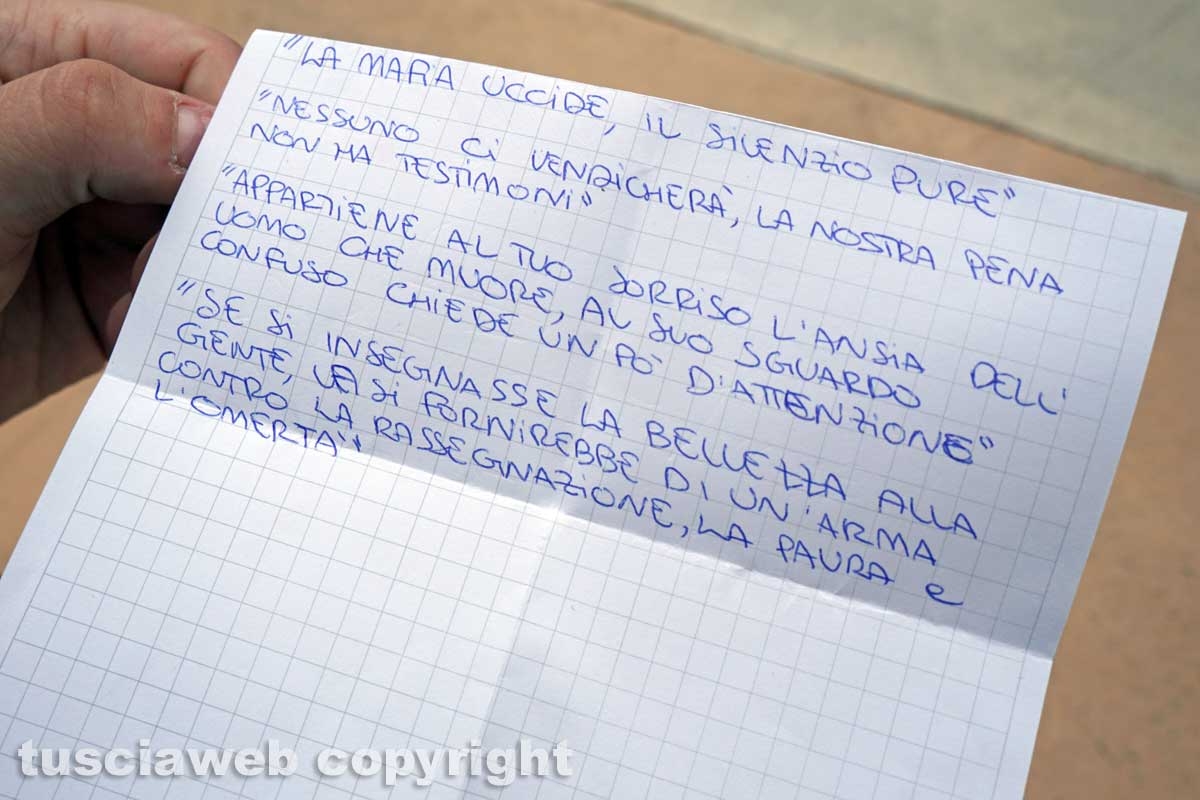 "LA MAFIA UCCIDE, IL SILENZIO PURE"
"NESSUNO CI VENDICHERÀ, LA NOSTRA PENA
NON HA TESTIMONI"
"APPARTIENE AL TUO SORRISO L'ANSIA DELL'
UOMO CHE MUORE, AL SUO SGUARDO
CONFUSO CHIEDE UN PO' D'ATTENZIONE"
"SE SI INSEGNASSE LA BELLEZZA ALLA
GENTE, LA SI FORNIREBBE DI UN'ARMA
CONTRO LA RASSEGNAZIONE, LA PAURA e
L'OMERTÀ"
tusciaweb copyright